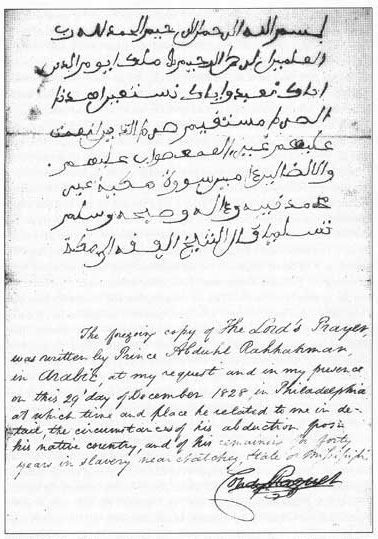 بسم الله الرحمن الرحيم الحمد لله رب
العلمين الرحمن الرحيم ملك يوم الدين
اياك نعبد واياك نستعين اهدنا
الصرط مستقيم صرط الذين انعمت
عليهم غير المغضوب عليهم
ولا الضالين امين سورة مكية
محمد نبيه وءاله وصحبه وسلم
تسليما قال الشيخ الفقه
The foregoing copy of The Lord's Prayer,
was written by Prince Abduhl Rahhahman,
in Arabic, at my request and in my presence
on this 29 day of December 1828, in Philadelphia
at which time and place he related to me in de-
tail the circumstances of his abduction from
his native country, and of his remaining forty
years in slavery near Natchez, State of Mississippi
Condy Raguet